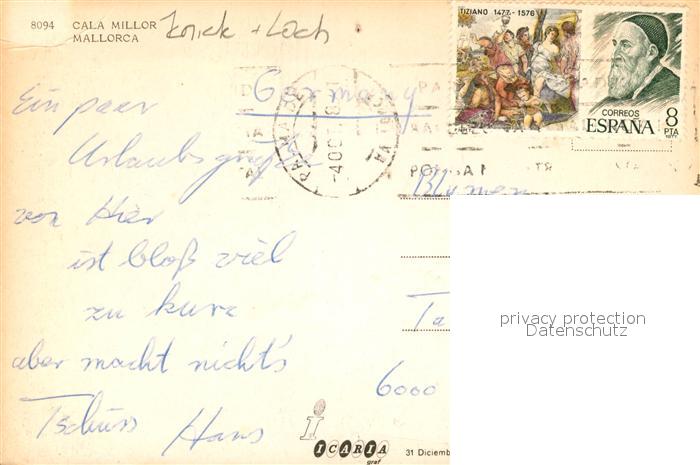 8094 CALA MILLOR
MALLORCA
+ Loch
TIZIANO 1477-1576
CORREOS
ESPAÑA 8
PTA
1977
Germany
PALMA
-4 OCT
Ein paar
Urlaubsgrüße
von Hier
ist bloß viel
zu kurz
aber macht nicht's
Tschüss Hans
Blumen
Ta
6000
privacy protection
Datenschutz
i
ICARIA
graf
31 Diciemb